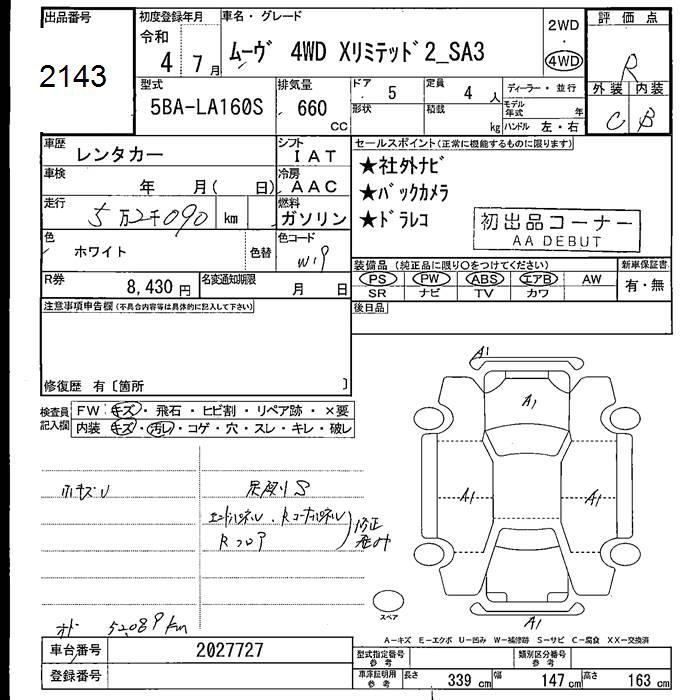 出品番号
2143
初度登録年月
令和
4 7月
車名・グレード
ムーヴ 4WD Xリミテッド2_SA3
2WD
・
4WD
評価点
R
外装 内装
C B
型式
5BA-LA160S
排気量
660
cc
ドア
5
定員
4人
形状
積載
kg
ディーラー・並行
モデル年式 年
ハンドル 左・右
車歴
レンタカー
シフト
IAT
車検
年 月( 日)
冷房
AAC
走行
5万2千090 km
燃料
ガソリン
色
ホワイト
色替
色コード
W19
R券
8,430円
名変通知期限
月 日
セールスポイント(正常に機能するものに限ります)
★社外ナビ
★バックカメラ
★ドラレコ
初出品コーナー
AA DEBUT
装備品(純正品に限り○をつけてください)
PS PW ABS エアB AW
SR ナビ TV カワ
新車保証書
有・無
後日品
注意事項申告欄(不具合内容等は具体的に記入して下さい)
修復歴 有〔箇所 〕
検査員記入欄
FW・キズ・飛石・ヒビ割・リペア跡・×要
内装・キズ・汚レ・コゲ・穴・スレ・キレ・破レ
小キズU
灰周りS
エンドパネル、Rコーナーパネル
Rフロア
修正
オド 52089km
A1
A1
A1
A1
A1
スペア
A-キズ E-エクボ U-凹み W-補修跡 S-サビ C-腐食 XX-交換済
車台番号
2027727
登録番号
型式指定番号
参考
類別区分番号
参考
車庫証明用
参考
長さ 339cm 幅 147cm 高さ 163cm